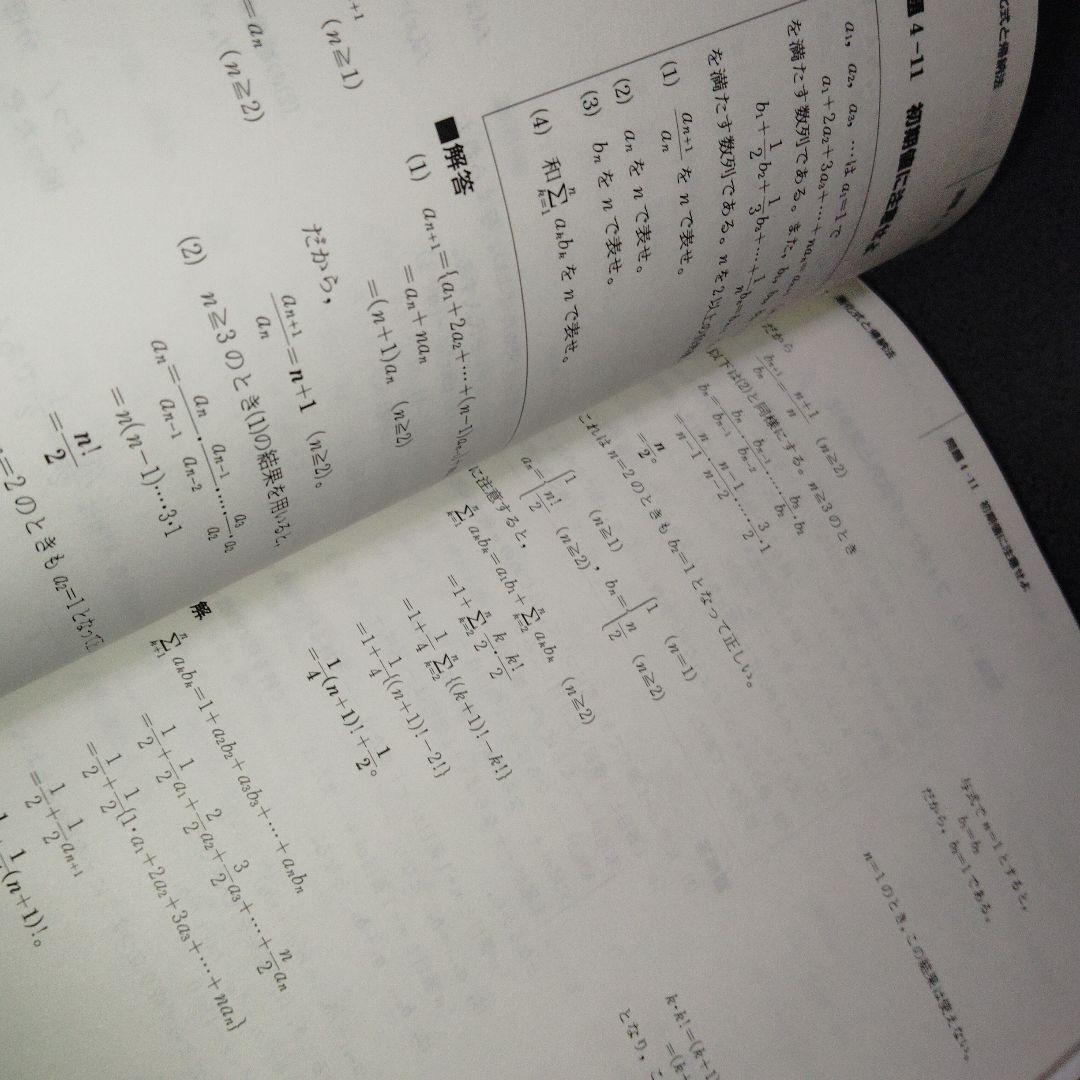 4-11 初期値に注意せよ
a₁, a₂, a₃, …は a₁=1 で
a₁+2a₂+3a₃+…+naₙ=
を満たす数列である。また,
b₁+1/2 b₂+1/3 b₃+…+1/n
を満たす数列である。nを2以上の
(1) aₙ₊₁/aₙ を n で表せ。
(2) aₙ を n で表せ。
(3) bₙ を n で表せ。
(4) 和 Σₖ₌₁ⁿ aₖbₖ を n で表せ。
■解答
(1) aₙ₊₁={a₁+2a₂+…+(n-1)aₙ₋₁
=aₙ+naₙ
=(n+1)aₙ (n≧2)
だから,
aₙ₊₁/aₙ=n+1 (n≧2)。
(2) n≧3 のとき(1)の結果を用いると,
aₙ=aₙ/aₙ₋₁・aₙ₋₁/aₙ₋₂・…・a₃/a₂・a₂
=n(n-1)・…・3・1
=n!/2
=2 のときも a₂=1 となって正
+1 (n≧1)
=aₙ (n≧2)
化式と帰納法
問題 4-11 初期値に注意せよ
だから
bₙ₊₁/bₙ=n+1/n (n≧2)
以下は(2)と同様にする。n≧3 のとき
bₙ=bₙ/bₙ₋₁・bₙ₋₁/bₙ₋₂・…・b₃/b₂・b₂
=n/n-1・n-1/n-2・…・3/2・1
=n/2。
これは n=2 のときも b₂=1 となって正しい。
aₙ={1 (n≧1) n!/2 (n≧2), bₙ={1 (n=1) n/2 (n≧2)
に注意すると,
Σₖ₌₁ⁿ aₖbₖ=a₁b₁+Σₖ₌₂ⁿ aₖbₖ (n≧2)
=1+Σₖ₌₂ⁿ k/2・k!/2
=1+1/4 Σₖ₌₂ⁿ{(k+1)!-k!}
=1+1/4{(n+1)!-2!}
=1/4(n+1)!+1/2。
解
Σₖ₊₁ⁿ aₖbₖ=1+a₂b₂+a₃b₃+…+aₙbₙ
=1/2+1/2a₁+2/2a₂+3/2a₃+…+n/2aₙ
=1/2+1/2{1・a₁+2a₂+3a₃+…+naₙ}
=1/2+1/2aₙ₊₁
1/4(n+1)!。
与式で n=1 とすると,
b₁=b₂
だから, b₂=1 である。
n=1 のとき, この結果は使えない。
k・k!=(k+1)
=(k+
となり, こ